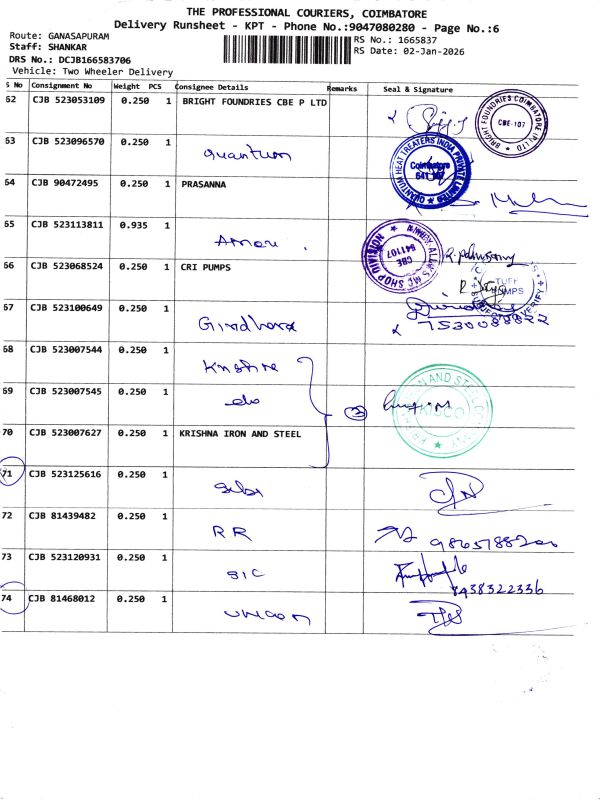 THE PROFESSIONAL COURIERS, COIMBATORE
Delivery Runsheet - KPT - Phone No.:9047080280 - Page No.:6
Route: GANASAPURAM
RS No.: 1665837
Staff: SHANKAR
RS Date: 02-Jan-2026
DRS No.: DCJB166583706
Vehicle: Two Wheeler Delivery
S No Consignment No Weight PCS Consignee Details Remarks Seal & Signature
62 CJB 523053109 0.250 1 BRIGHT FOUNDRIES CBE P LTD
BRIGHT FOUNDRIES COIMBATORE (P) LTD
CBE-107
63 CJB 523096570 0.250 1 Quantum
QUANTUM HEAT TREATERS INDIA PRIVATE LIMITED
Coimbatore
641 107
64 CJB 90472495 0.250 1 PRASANNA
65 CJB 523113811 0.935 1
MC SHOP DIVISION
CBE
641107
66 CJB 523068524 0.250 1 CRI PUMPS
TUFF
67 CJB 523100649 0.250 1 Giridhara
68 CJB 523007544 0.250 1
69 CJB 523007545 0.250 1 do
KISCO
70 CJB 523007627 0.250 1 KRISHNA IRON AND STEEL
71 CJB 523125616 0.250 1
72 CJB 81439482 0.250 1 RR
73 CJB 523120931 0.250 1 SIC
74 CJB 81468012 0.250 1 Unicon